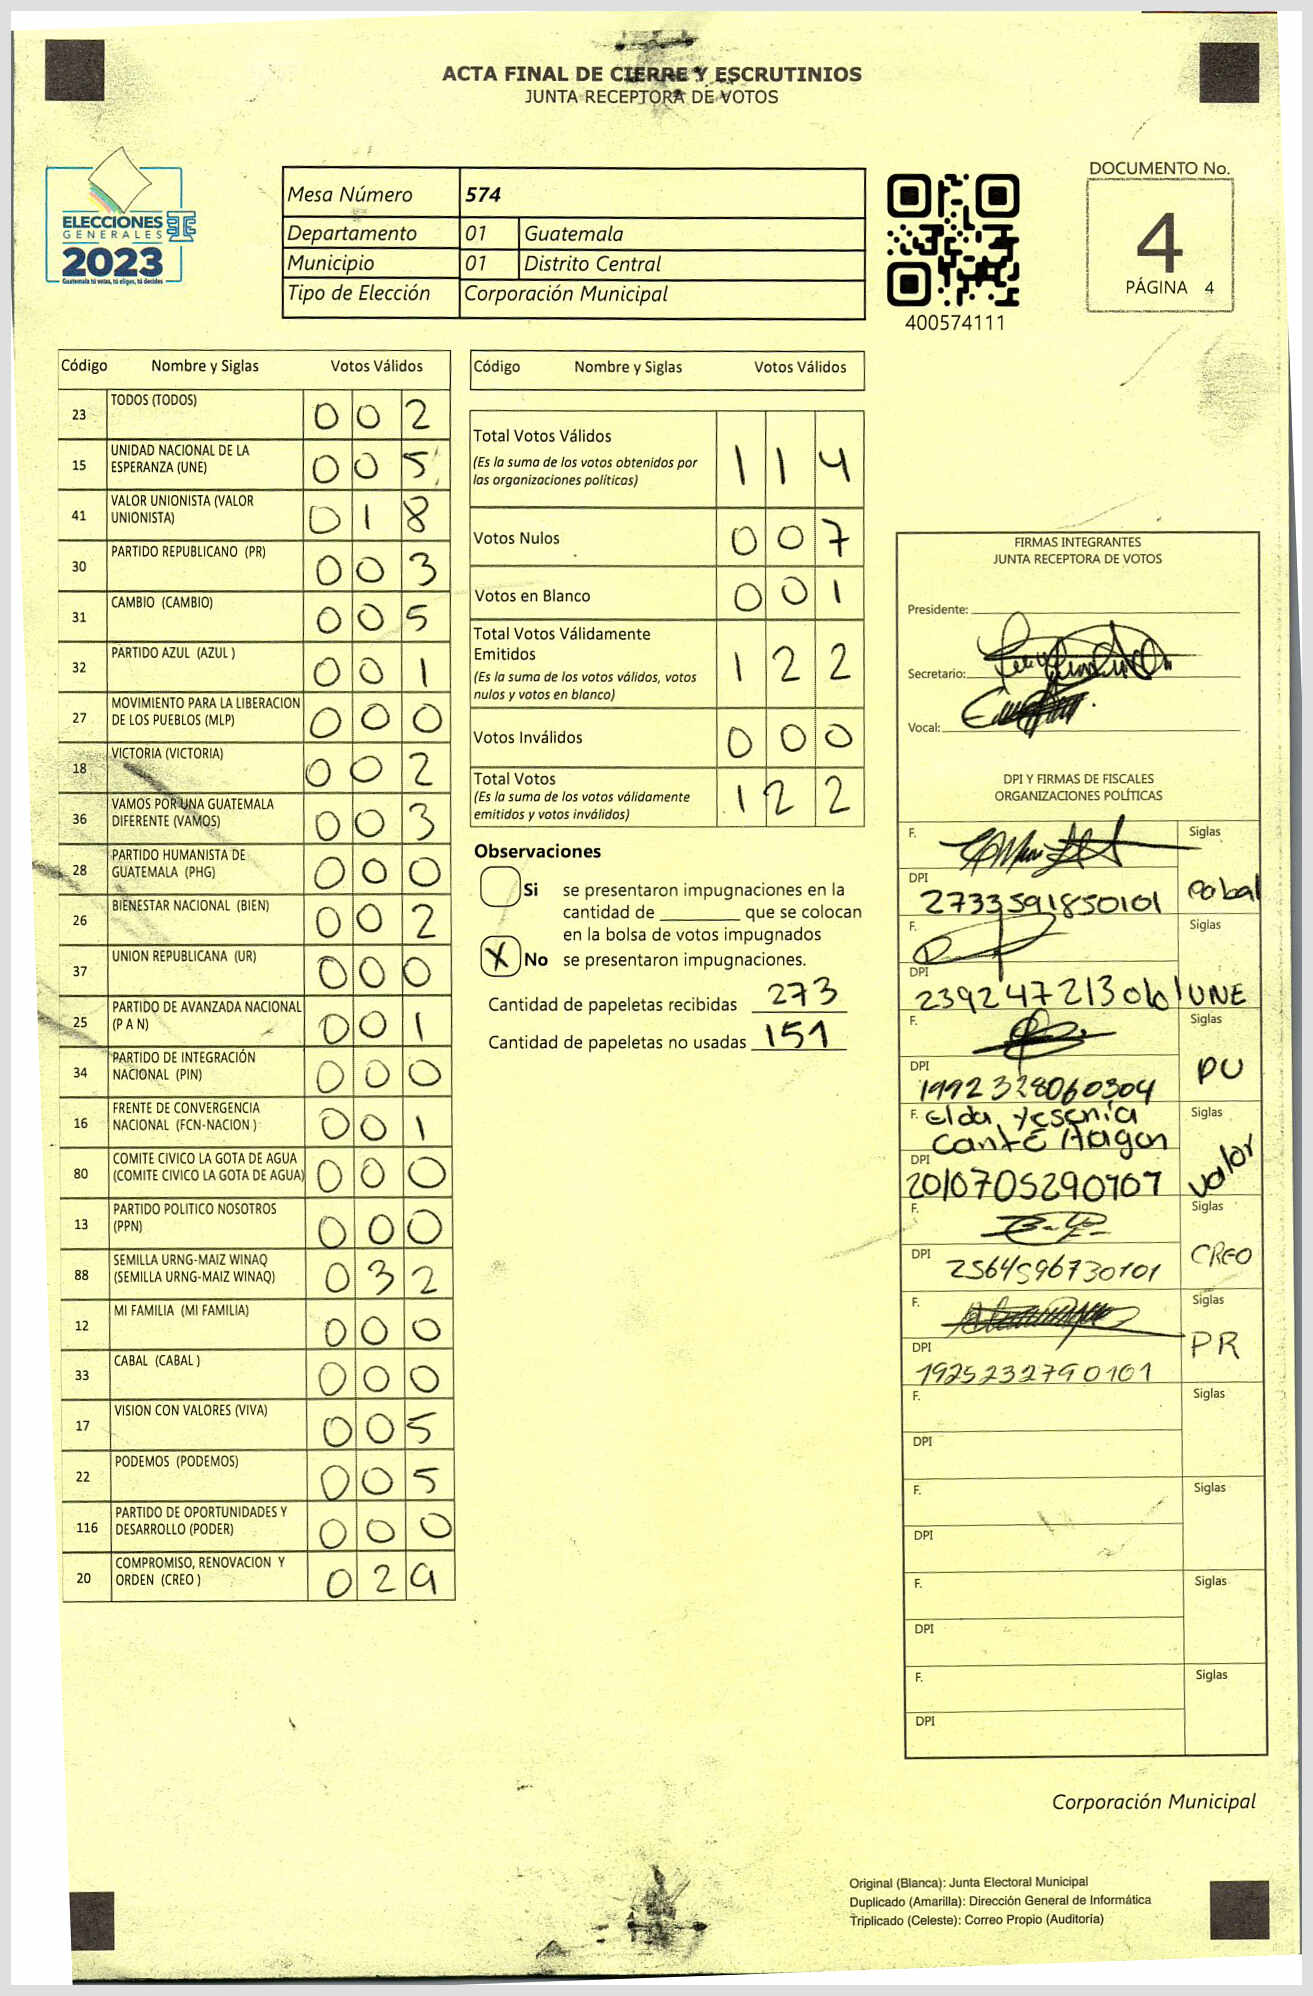 ACTA FINAL DE CIERRE Y ESCRUTINIOS
JUNTA RECEPTORA DE VOTOS
ELECCIONES
GENERALES
2023
Guatemala tú votas, tú eliges, tú decides
Mesa Número 574
Departamento 01 Guatemala
Municipio 01 Distrito Central
Tipo de Elección Corporación Municipal
400574111
DOCUMENTO No.
4
PÁGINA 4
Código Nombre y Siglas Votos Válidos
23 TODOS (TODOS) 0 0 2
15 UNIDAD NACIONAL DE LA ESPERANZA (UNE) 0 0 5
41 VALOR UNIONISTA (VALOR UNIONISTA) 0 1 8
30 PARTIDO REPUBLICANO (PR) 0 0 3
31 CAMBIO (CAMBIO) 0 0 5
32 PARTIDO AZUL (AZUL ) 0 0 1
27 MOVIMIENTO PARA LA LIBERACION DE LOS PUEBLOS (MLP) 0 0 0
18 VICTORIA (VICTORIA) 0 0 2
36 VAMOS POR UNA GUATEMALA DIFERENTE (VAMOS) 0 0 3
28 PARTIDO HUMANISTA DE GUATEMALA (PHG) 0 0 0
26 BIENESTAR NACIONAL (BIEN) 0 0 2
37 UNION REPUBLICANA (UR) 0 0 0
25 PARTIDO DE AVANZADA NACIONAL (P A N) 0 0 1
34 PARTIDO DE INTEGRACIÓN NACIONAL (PIN) 0 0 0
16 FRENTE DE CONVERGENCIA NACIONAL (FCN-NACION ) 0 0 1
80 COMITE CIVICO LA GOTA DE AGUA (COMITE CIVICO LA GOTA DE AGUA) 0 0 0
13 PARTIDO POLITICO NOSOTROS (PPN) 0 0 0
88 SEMILLA URNG-MAIZ WINAQ (SEMILLA URNG-MAIZ WINAQ) 0 3 2
12 MI FAMILIA (MI FAMILIA) 0 0 0
33 CABAL (CABAL ) 0 0 0
17 VISION CON VALORES (VIVA) 0 0 5
22 PODEMOS (PODEMOS) 0 0 5
116 PARTIDO DE OPORTUNIDADES Y DESARROLLO (PODER) 0 0 0
20 COMPROMISO, RENOVACION Y ORDEN (CREO ) 0 2 9
Código Nombre y Siglas Votos Válidos
Total Votos Válidos 1 1 4
(Es la suma de los votos obtenidos por
las organizaciones políticas)
Votos Nulos 0 0 7
Votos en Blanco 0 0 1
Total Votos Válidamente
Emitidos 1 2 2
(Es la suma de los votos válidos, votos
nulos y votos en blanco)
Votos Inválidos 0 0 0
Total Votos 1 2 2
(Es la suma de los votos válidamente
emitidos y votos inválidos)
Observaciones
Si se presentaron impugnaciones en la
cantidad de ________ que se colocan
en la bolsa de votos impugnados
X No se presentaron impugnaciones.
Cantidad de papeletas recibidas 273
Cantidad de papeletas no usadas 151
FIRMAS INTEGRANTES
JUNTA RECEPTORA DE VOTOS
Presidente:
Secretario:
Vocal:
DPI Y FIRMAS DE FISCALES
ORGANIZACIONES POLÍTICAS
F. Siglas
DPI 2733591850101 Cabal
F. Siglas
DPI 2392472130101 UNE
F. Siglas
DPI 1992328060304 PU
F. Elda Yesenia Siglas
Canté Hagen
DPI 2010705290707 Valor
F. Siglas
DPI 2564596730101 CREO
F. Siglas
DPI 1925232790101 PR
F. Siglas
DPI
F. Siglas
DPI
F. Siglas
DPI
F. Siglas
DPI
Corporación Municipal
Original (Blanca): Junta Electoral Municipal
Duplicado (Amarilla): Dirección General de Informática
Triplicado (Celeste): Correo Propio (Auditoría)